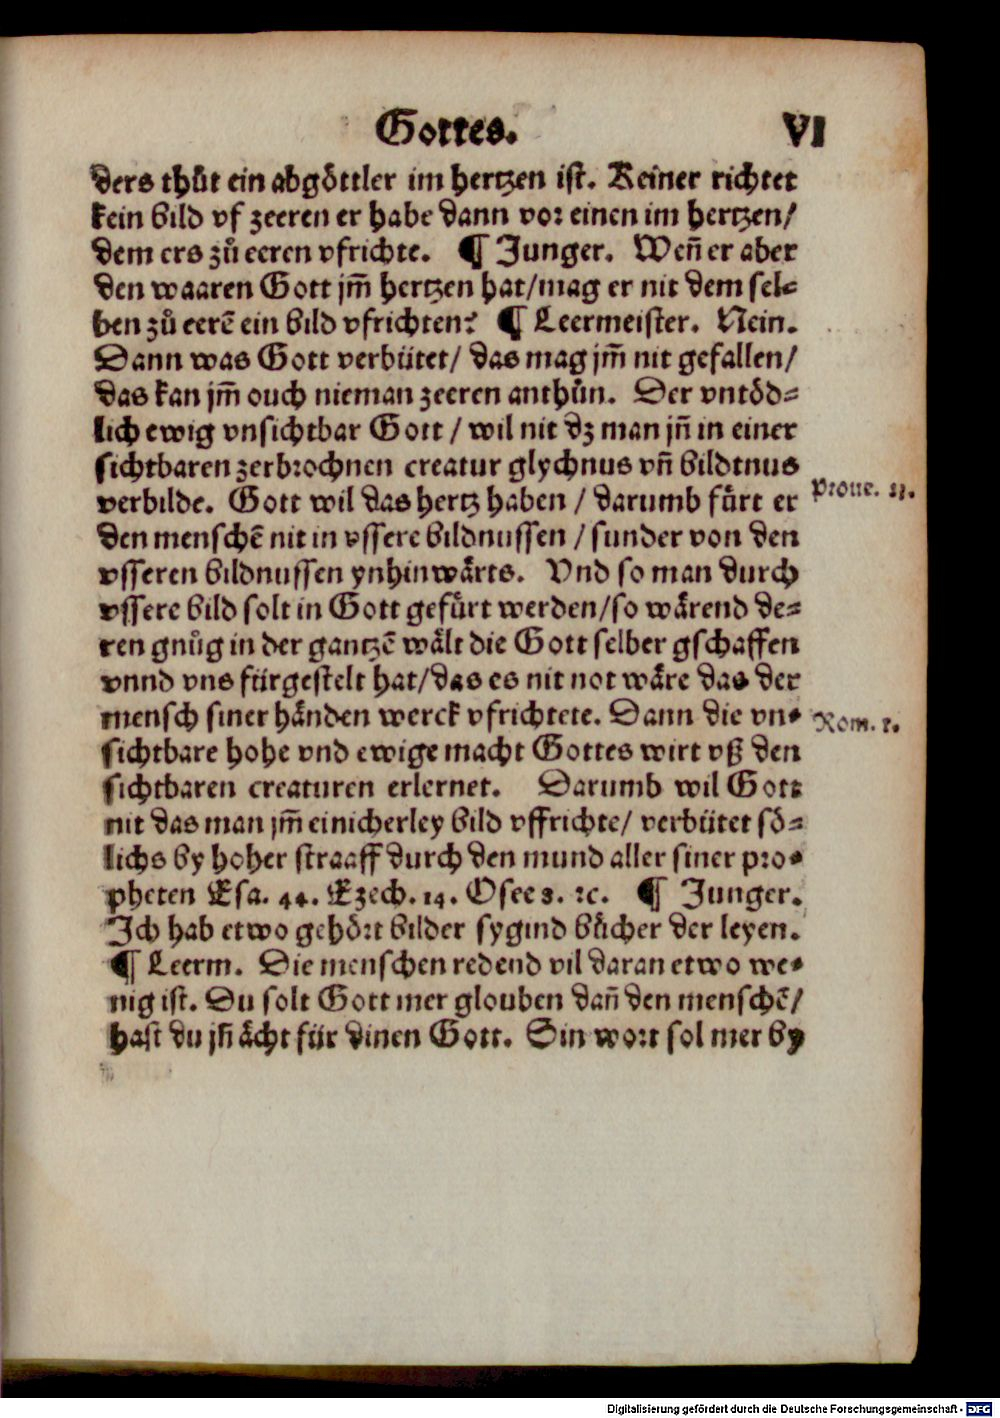 Gottes. VI
ders thuͦt ein abgoͤttler im hertzen ist. Keiner richtet
kein bild vf zeeren er habe dann vor einen im hertzen/
dem ers zuͦ eeren vfrichte. ¶ Junger. Weñ er aber
den waaren Gott jm̃ hertzen hat/mag er nit dem sel⸗
ben zuͦ eerẽ ein bild vfrichten? ¶ Leermeister. Nein.
Dann was Gott verbütet/ das mag jm̃ nit gefallen/
das kan jm̃ ouch nieman zeeren anthuͦn. Der vntoͤd⸗
lich ewig vnsichtbar Gott / wil nit dz man jñ in einer
sichtbaren zerbrochnen creatur glychnus vñ bildtnus
verbilde. Gott wil das hertz haben / darumb fuͤrt er
Proue. 23.
den menschẽ nit in vssere bildnussen / sunder von den
vsseren bildnussen ynhinwaͤrts. Vnd so man durch
vssere bild solt in Gott gefuͤrt werden/so waͤrend de⸗
ren gnuͦg in der gantzẽ waͤlt die Gott selber gschaffen
vnnd vns fürgestelt hat/das es nit not waͤre das der
mensch siner haͤnden werck vfrichtete. Dann die vn⸗
Rom. 1.
sichtbare hohe vnd ewige macht Gottes wirt vß den
sichtbaren creaturen erlernet. Darumb wil Gott
nit das man jm̃ einicherley bild vffrichte/ verbütet soͤ⸗
lichs by hoher straaff durch den mund aller siner pro⸗
pheten Esa. 44. Ezech. 14. Osee 8. ꝛc. ¶ Junger.
Ich hab etwo gehoͤrt bilder sygind buͤcher der leyen.
¶ Leerm. Die menschen redend vil daran etwo we⸗
nig ist. Du solt Gott mer glouben dañ den menschẽ/
hast du jñ aͤcht für dinen Gott. Sin wort sol mer by
Digitalisierung gefördert durch die Deutsche Forschungsgemeinschaft - DFG